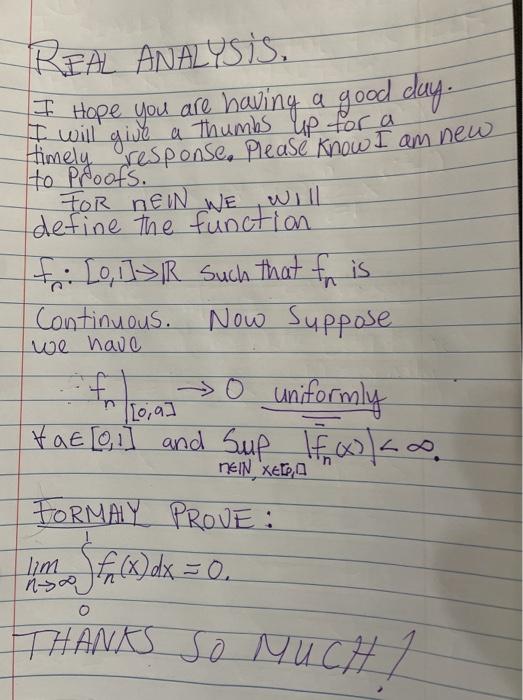 REAL ANALYSIS.
I Hope you are having a good day.
I will give a thumbs up for a
timely response. Please know I am new
to Proofs.
FOR n∈ℕ WE will
define the function
fₙ: [0,1]→ℝ such that fₙ is
Continuous. Now Suppose
we have
fₙ|[0,a] → 0 uniformly
∀a∈[0,1] and Sup |fₙ(x)|<∞.
n∈ℕ, x∈[0,1]
FORMALY PROVE:
lim n→∞ ∫₀¹ fₙ(x)dx = 0.
THANKS SO MUCH!